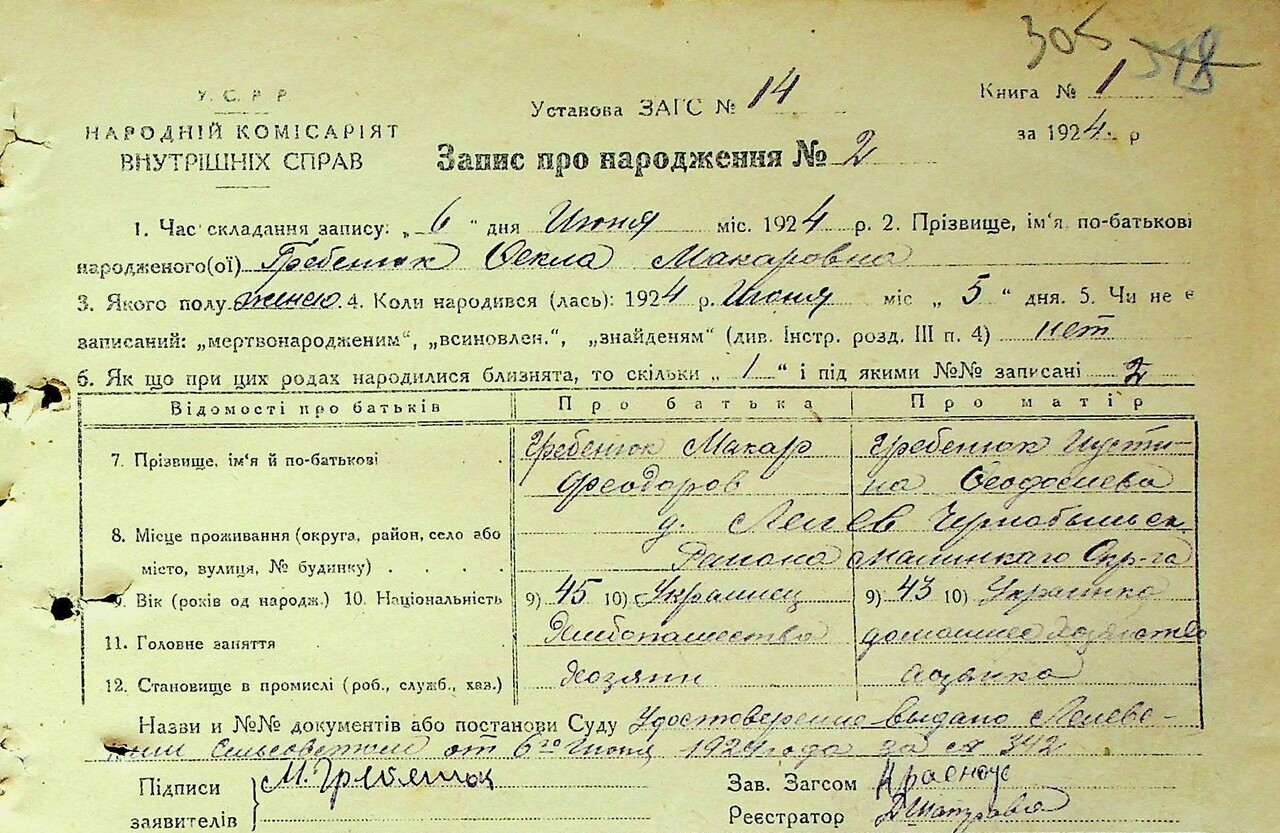 305 318
У. С. Р. Р.
НАРОДНІЙ КОМІСАРІЯТ
ВНУТРІШНІХ СПРАВ
Установа ЗАГС № 14
Книга № 1
за 1924 р
Запис про народження № 2
1. Час складання запису: „ 6 " дня Июня міс. 1924 р. 2. Прізвище, ім'я, по-батькові
народженого(ої) Гребенюк Фекла Макаровна
3. Якого полу женск. 4. Коли народився (лась): 1924 р. Июня міс „ 5 " дня. 5. Чи не є
записаний: „мертвонародженим", „всиновлен.", „знайденям" (див. Інстр. розд. III п. 4) нет
6. Як що при цих родах народилися близнята, то скільки „ 1 " і під якими №№ записані 2
Відомості про батьків Про батька Про матір
7. Прізвище, ім'я й по-батькові Гребенюк Макар Гребенюк Иусти-
Феодоров на Феодосиева
8. Місце проживання (округа, район, село або д. Лелев Чернобыльск
місто, вулиця, № будинку) Района Малинкаго Окр-га
9. Вік (років од народж.) 10. Національність 9) 45 10) Украинец 9) 43 10) Украинка
11. Головне заняття Хлебопашество домашнее хозяйство
12. Становище в промислі (роб., служб., хаз.) Хозяин
Назви и №№ документів або постанови Суду Удостоверение выдано Лелевс-
ким сельсоветом от 6го Июня 1924 года за № 342
Підписи М. Гребенюк Зав. Загсом
заявителів Реєстратор